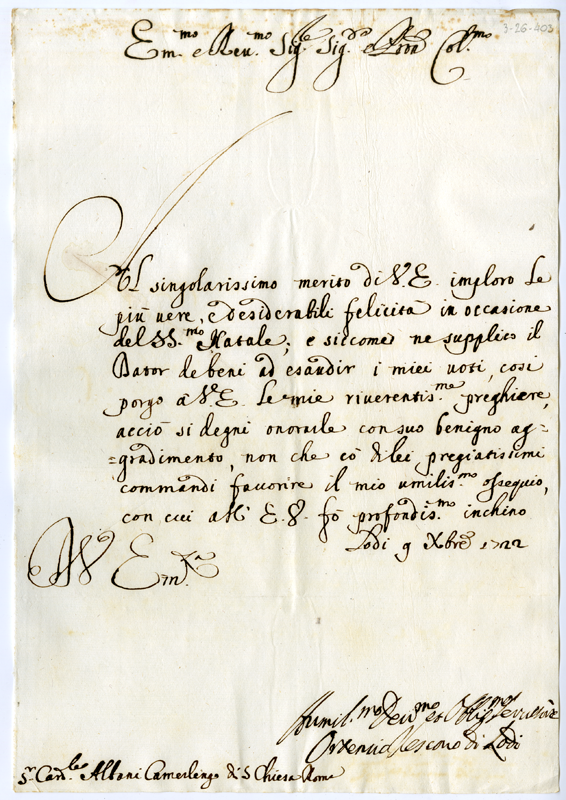 3-26-403
Em.mo e Reu.mo Sig.re Sig.re e Pron Col.mo
Al singolarissimo merito di V. E. imploro le
più uere, e desiderabili felicità in occasione
del SS.mo Natale; e siccome ne supplico il
Dator de beni ad esaudir i miei uoti, così
porgo à V. E. le mie riuerentis.me preghiere,
acciò si degni onorarle con suo benigno ag=
=gradimento, non che cō di lei pregiatissimi
commandi fauorire il mio umilis.mo ossequio,
con cui all' E. V. fò profondis.mo inchino
Lodi 9 Xbre 1722
Em.za
Humil.mo Deu.mo et Obblig.mo Seruitore
Ortensio Vescouo di Lodi
Sr. Card.le Albani Camerlengo di S Chiesa Roma